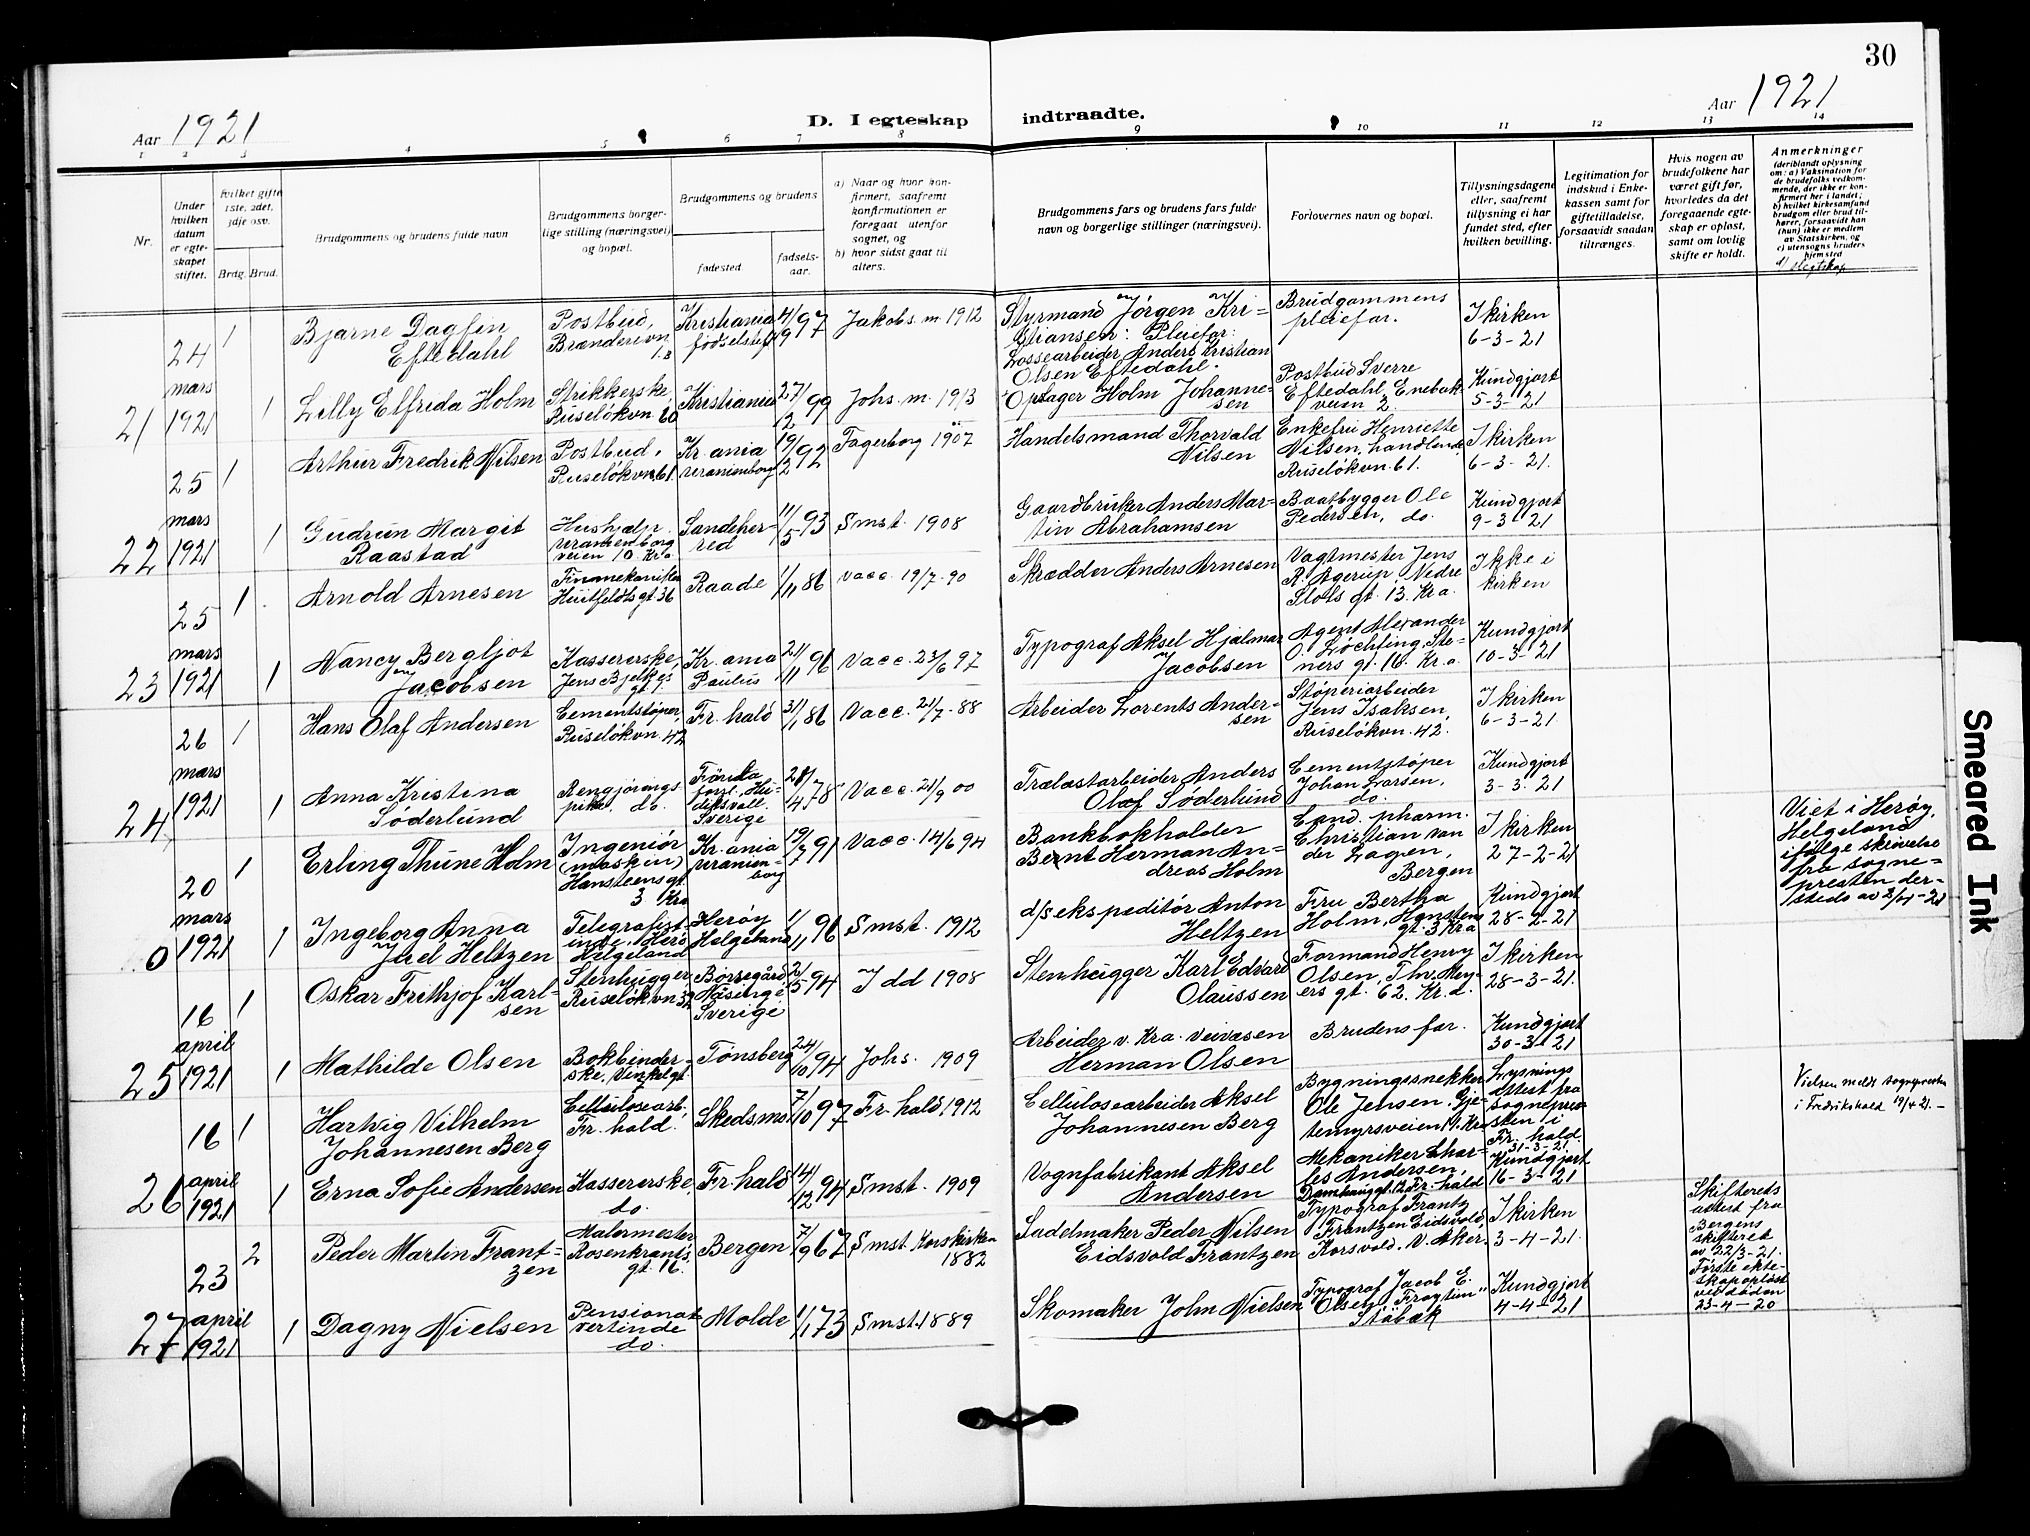 30
Aar 1921
D. I egteskap indtraadte.
Aar 1921
1 2 3 4 5 6 7 8 9 10 11 12 13 14
Nr.
Under hvilken datum er egteskapet stiftet.
hvilket gifte 1ste, 2det, 3dje osv.
Brdg. Brud.
Brudgommens og brudens fulde navn
Brudgommens borgerlige stilling (næringsvei) og bopæl.
Brudgommens og brudens
fødested.
fødselsaar.
a) Naar og hvor konfirmert, saafremt konfirmationen er foregaat utenfor sognet, og
b) hvor sidst gaat til alters.
Brudgommens fars og brudens fars fulde navn og borgerlige stillinger (næringsvei).
Forlovernes navn og bopæl.
Tillysningsdagene eller, saafremt tillysning ei har fundet sted, efter hvilken bevilling.
Legitimation for indskud i Enkekassen samt for giftetilladelse, forsaavidt saadan tiltrænges.
Hvis nogen av brudefolkene har været gift før, hvorledes da det foregaaende egteskap er opløst, samt om lovlig skifte er holdt.
Anmerkninger
(deriblandt oplysning om: a) Vaksination for de brudefolks vedkommende, der ikke er konfirmert her i landet, b) hvilket kirkesamfund brudgom eller brud tilhører, forsaavidt han (hun) ikke er medlem av Statskirken, og c) utensogns bruders hjemsted
d) slegtskap
21
24 mars 1921
1
Bjarne Dagfin Eftedahl
Postbud,
Kristiania fødselstift
4/9 97
Jakobs m. 1912
Styrmand Jørgen Kristiansen: Pleiefar: Lossearbeider Anders Kristian Olsen Eftedahl.
Brudgommens pleiefar.
I kirken 6-3-21
1
Lilly Elfrida Holm
Strikkerske, Ruseløkvn. 60
Kristiania
27/12 99
Johs. m. 1913
Opsager Holm Johannesen
Postbud Sverre Eftedahl, Enebakveien 2.
Kundgjort 5-3-21
22
25 mars 1921
1
Arthur Fredrik Nilsen
Postbud, Ruseløkvn. 61
Kr.ania Uranienborg
19/2 92
Fagerborg 1907
Handelsmand Thorvald Nilsen
Enkefru Henriette Nilsen, handlende, Ruseløkvn. 61.
I kirken 6-3-21.
1
Gudrun Margit Raastad
Hushjælp. Uranienborgveien 10. Kr.a
Sandeherred
11/5 93
Smst. 1908
Gaardbruker Anders Martin Abrahamsen
Baatbygger Ole Pedersen, do.
Kundgjort 9-3-21
23
25 mars 1921
1
Arnold Arnesen
Finmekaniker Huitfeldts gt. 36
Raade
1/11 86
Vacc. 19/7-90
Skrædder Anders Arnesen
Vagtmester Jens R. Agerup, Nedre Slots gt. 13. Kr.a.
Ikke i kirken
1
Nancy Bergljot Jacobsen
Kassererske, Jens Bjelkes gt. 7.
Kr.ania Paulus
21/11 96
Vacc. 23/6 97
Typograf Aksel Hjalmar Jacobsen
Agent Alexander O. Løchting, Steners gt. 16. Kr.a.
Kundgjort 10-3-21
24
26 mars 1921
1
Hans Olaf Andersen
Cementstøper, Ruseløkvn. 42
Fr.hald
31/1 86
Vacc. 21/7-88
Arbeider Lorents Andersen
Støperiarbeider Jens Isaksen, Ruseløkvn. 42.
I kirken 6-3-21
1
Anna Kristina Söderlund
Rengjøringspike. do.
Hudiksvall. Sverige
28/4 78
Vacc. 21/9 00
Trælastarbeider Anders Olof Söderlund
Cementstøper Johan Larsen, do.
Kundgjort 3-3-21
0
20 mars 1921
1
Erling Thune Holm
Ingeniör (maskin) Hansteensgt. 3 Kra
Kr.ania Uranienborg
19/7 91
Vacc. 14/6 94
Bankbokholder Bernt Herman Andreas Holm
Cand. pharm. Christian van der Lagen, Bergen
I kirken 27-2-21
Viet i Herøy, Helgeland ifølge skrivelse fra sognepresten dersteds av
1
Ingeborg Anna Juel Heltzen
Telegrafistinde, Herö Helgeland
Herøy Helgeland
1/11 96
Smst. 1912
d/s ekspeditör Anton Heltzen
Fru Bertha Holm, Hansteens gt. 3 Kra
Kundgjort 28-2-21
25
16 april 1921
1
Oskar Frithjof Karlsen
Stenhugger Ruseløkvn 32
Sverige
2/5 94
I dd 1908
Stenhugger Karl Edvard Olaussen
Formand Henry Olsen, Thv. Meyers gt. 62. Kr.a.
I kirken 28-3-21.
1
Mathilde Olsen
Bokbinderske, Vinkelgt.
Tønsberg
24/10 94
Johs. 1909
Arbeider v. Kra. veivæsen Herman Olsen
Brudens far.
Kundgjort 30-3-21
26
16 april 1921
1
Hartvig Vilhelm Johannesen Berg
Cellulosearb, Fr.hald.
Skedsmo
7/10 97
Fr.hald 1912
Cellulosearbeider Aksel Johannesen Berg
Bygningssnekker Ole Jensen, Gjetemyrsveien 19. Kra
Lysningsattest fra sognepresten i Fr.hald. 31-3-21.
Vielsen meldt sognepresten i Fredrikshald 19/4 21.-
1
Erna Sofie Andersen
Kassererske, do.
Fr.hald
14/12 94
Smst. 1909
Vognfabrikant Aksel Andersen
Mekaniker Charles Andersen, Fr.hald
Kundgjort 16-3-21
27
23 april 1921
2
Peder Martin Frantzen
Malermester Rosenkrants gt. 16.
Bergen
7/9 67
Smst. Korskirken 1882
Sadelmaker Peder Nilsen Eidsvold Frantzen
Typograf Frantz Frantzen Eidsvold, Korsvold. V. Aker.
I kirken 3-4-21.
Skifterets attest fra Bergens skifteret av 22/3-21. Første ekteskap opløst ved døden 23-4-20
1
Dagny Nielsen
Pensionatvertinde do.
Molde
1/1 73
Smst. 1889
Skomaker John Nielsen
Typograf Jacob E. Olsen, Stabæk
Kundgjort 4-4-21
Smeared Ink